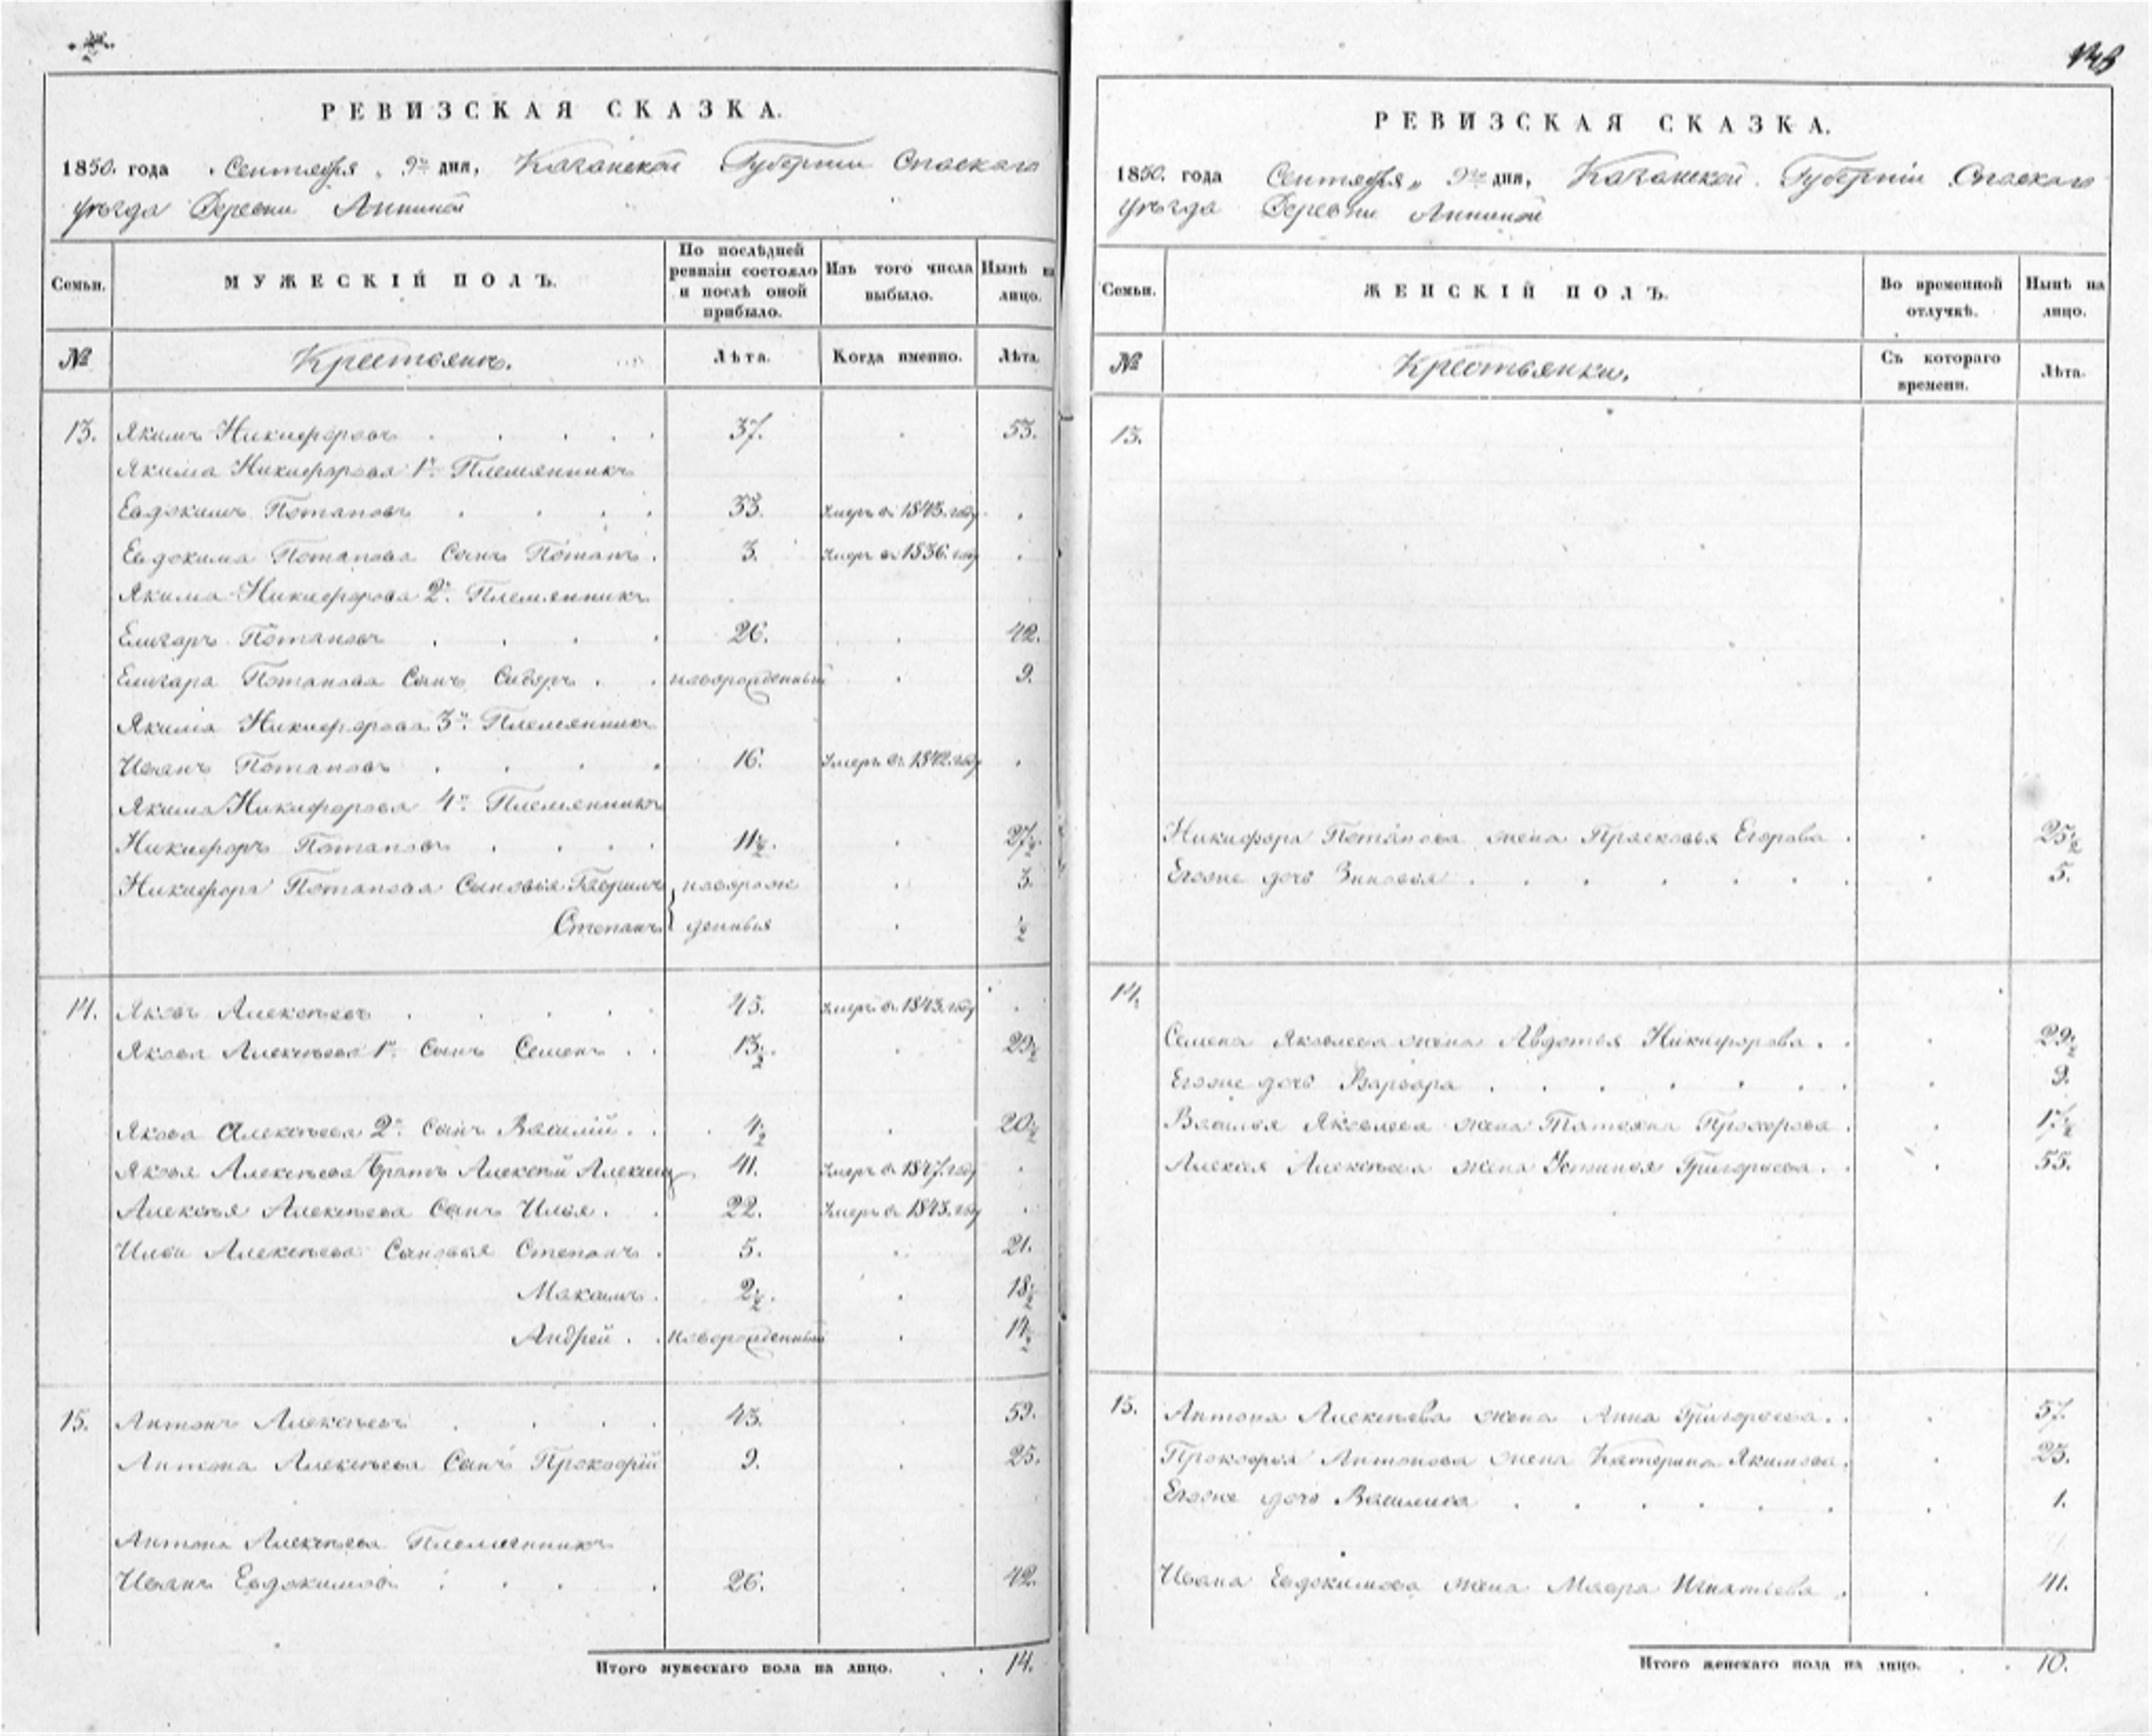 РЕВИЗСКАЯ СКАЗКА.
1850. года Сентября 9го дня, Казанской Губернии Спаского
уѣзда Деревни Анниной
Семьи. МУЖЕСКІЙ ПОЛЪ. По послѣдней ревизіи состояло и послѣ оной прибыло. Изъ того числа выбыло. Нынѣ на лицо.
№ Крестьянъ. Лѣта. Когда именно. Лѣта.
13. Якимъ Никифоровъ 37. 53.
Якима Никифорова 1й Племянникъ
Евдокимъ Потаповъ 33. Умеръ въ 1843. году
Евдокима Потапова Сынъ Потапъ. 3. Умеръ въ 1836. году
Якима Никифорова 2й Племянникъ
Елизаръ Потаповъ 26. 42.
Елизара Потапова Сынъ Сидоръ. новорожденный 9.
Якима Никифорова 3й Племянникъ
Иванъ Потаповъ 16. Умеръ въ 1842. году
Якима Никифорова 4й Племянникъ
Никифоръ Потаповъ 11½. 27½.
Никифора Потапова Сыновья Гаврилъ новорож 3.
Степанъ денныя ½
14. Яковъ Алексѣевъ 45. Умеръ въ 1843. году
Якова Алексѣева 1й Сынъ Семенъ. 13½. 29½
Якова Алексѣева 2й Сынъ Василій. 4½ 20½
Якова Алексѣева братъ Алексѣй Алексѣевъ 41. Умеръ въ 1847. году
Алексѣя Алексѣева Сынъ Илья. 22. Умеръ въ 1843. году
Ильи Алексѣева Сыновья Степанъ. 5. 21.
Максимъ. 2½. 18½
Андрей. новорожденный 14½
15. Антонъ Алексѣевъ 43. 59.
Антона Алексѣева Сынъ Прокофій 9. 25.
Антона Алексѣева Племянникъ
Иванъ Евдокимовъ 26. 42.
Итого мужескаго пола на лицо. 14.
РЕВИЗСКАЯ СКАЗКА.
1850. года Сентября 9го дня, Казанской Губерніи Спаскаго
уѣзда Деревни Анниной
Семьи. ЖЕНСКІЙ ПОЛЪ. Во временной отлучкѣ. Нынѣ на лицо.
№ Крестьянки. Съ котораго времени. Лѣта.
13.
Никифора Потапова жена Прасковья Егорова. 25½
Егоже дочь Зиновья 5.
14.
Семена Яковлева жена Авдотья Никифорова. 29½
Егоже дочь Варвара 9.
Василья Яковлева жена Татьяна Прохорова. 17½
Алексея Алексѣева жена Устинья Григорьева. 55.
15. Антона Алексѣева жена Анна Григорьева. 57.
Прокофья Антонова жена Катерина Якимова. 23.
Егоже дочь Василиса 1.
Ивана Евдокимова жена Мавра Игнатьева. 41.
Итого женскаго пола на лицо. 10.